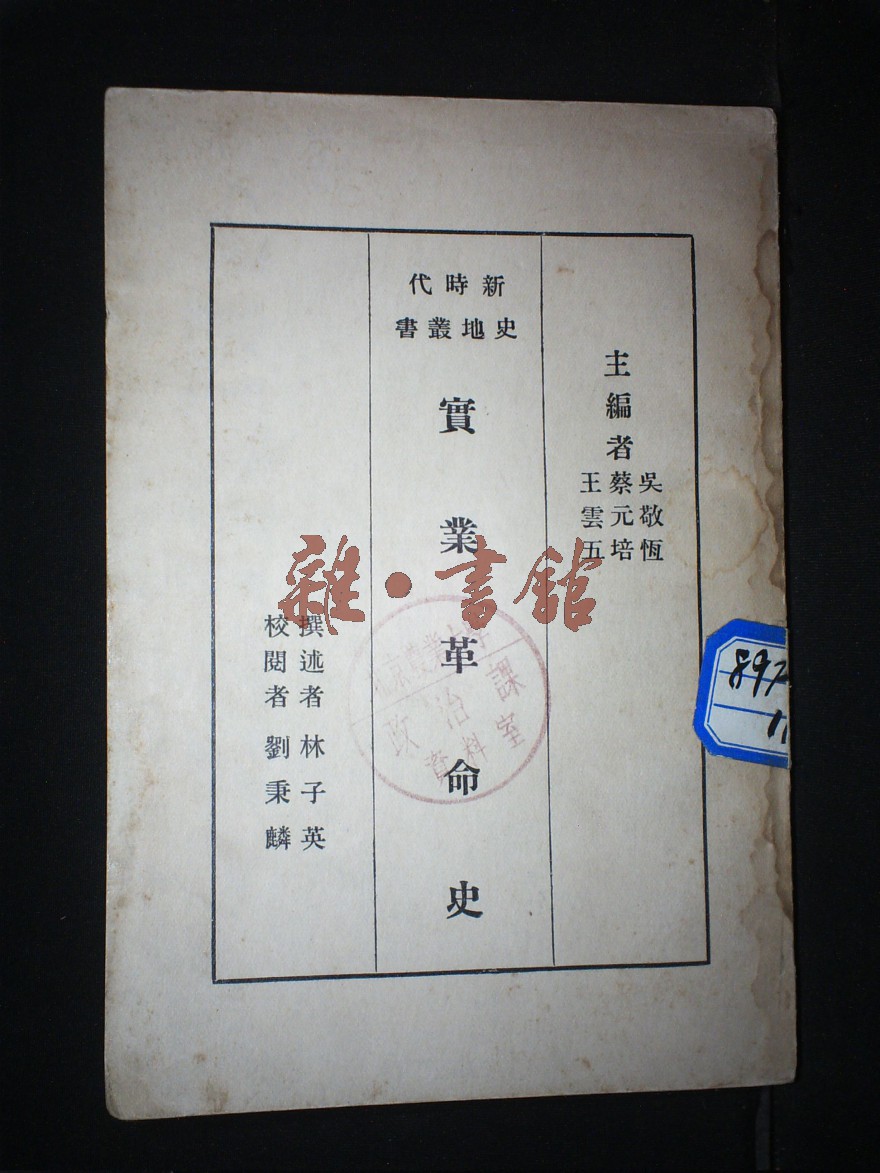 主編者
吳敬恆
蔡元培
王雲五
新時代
史地叢書
實業革命史
撰述者 林子英
校閱者 劉秉麟
雜·書館
北京農業大學
政治課
資料室
897
11